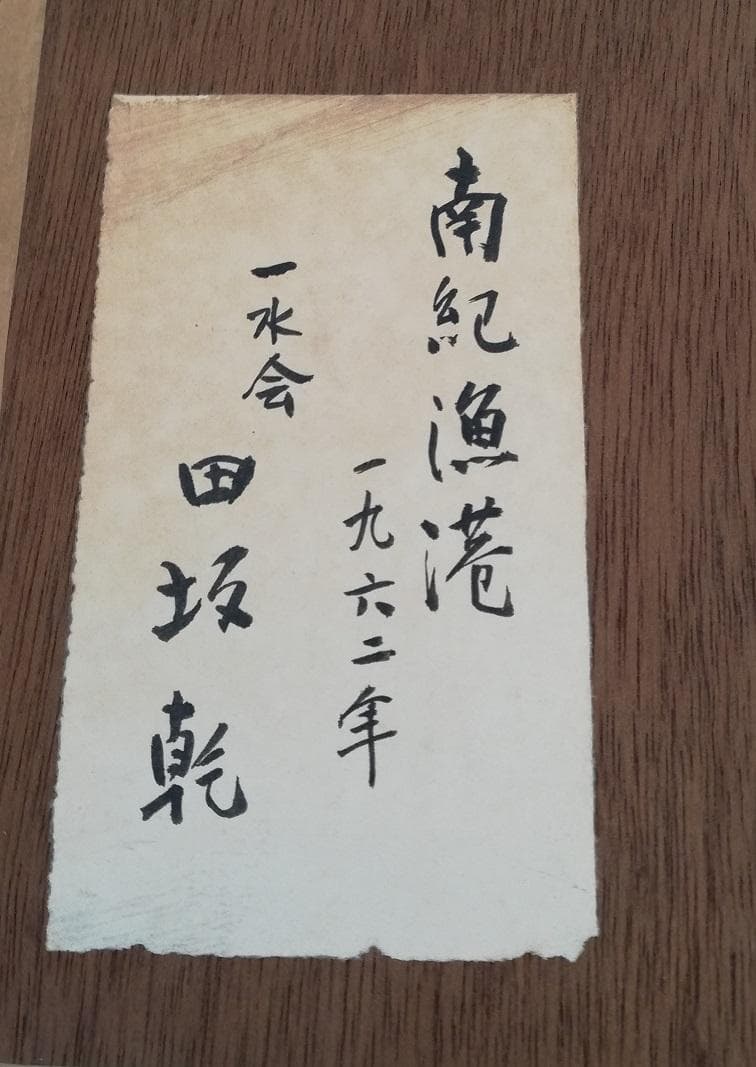 南紀漁港
一九六二年
一水会
田坂乾